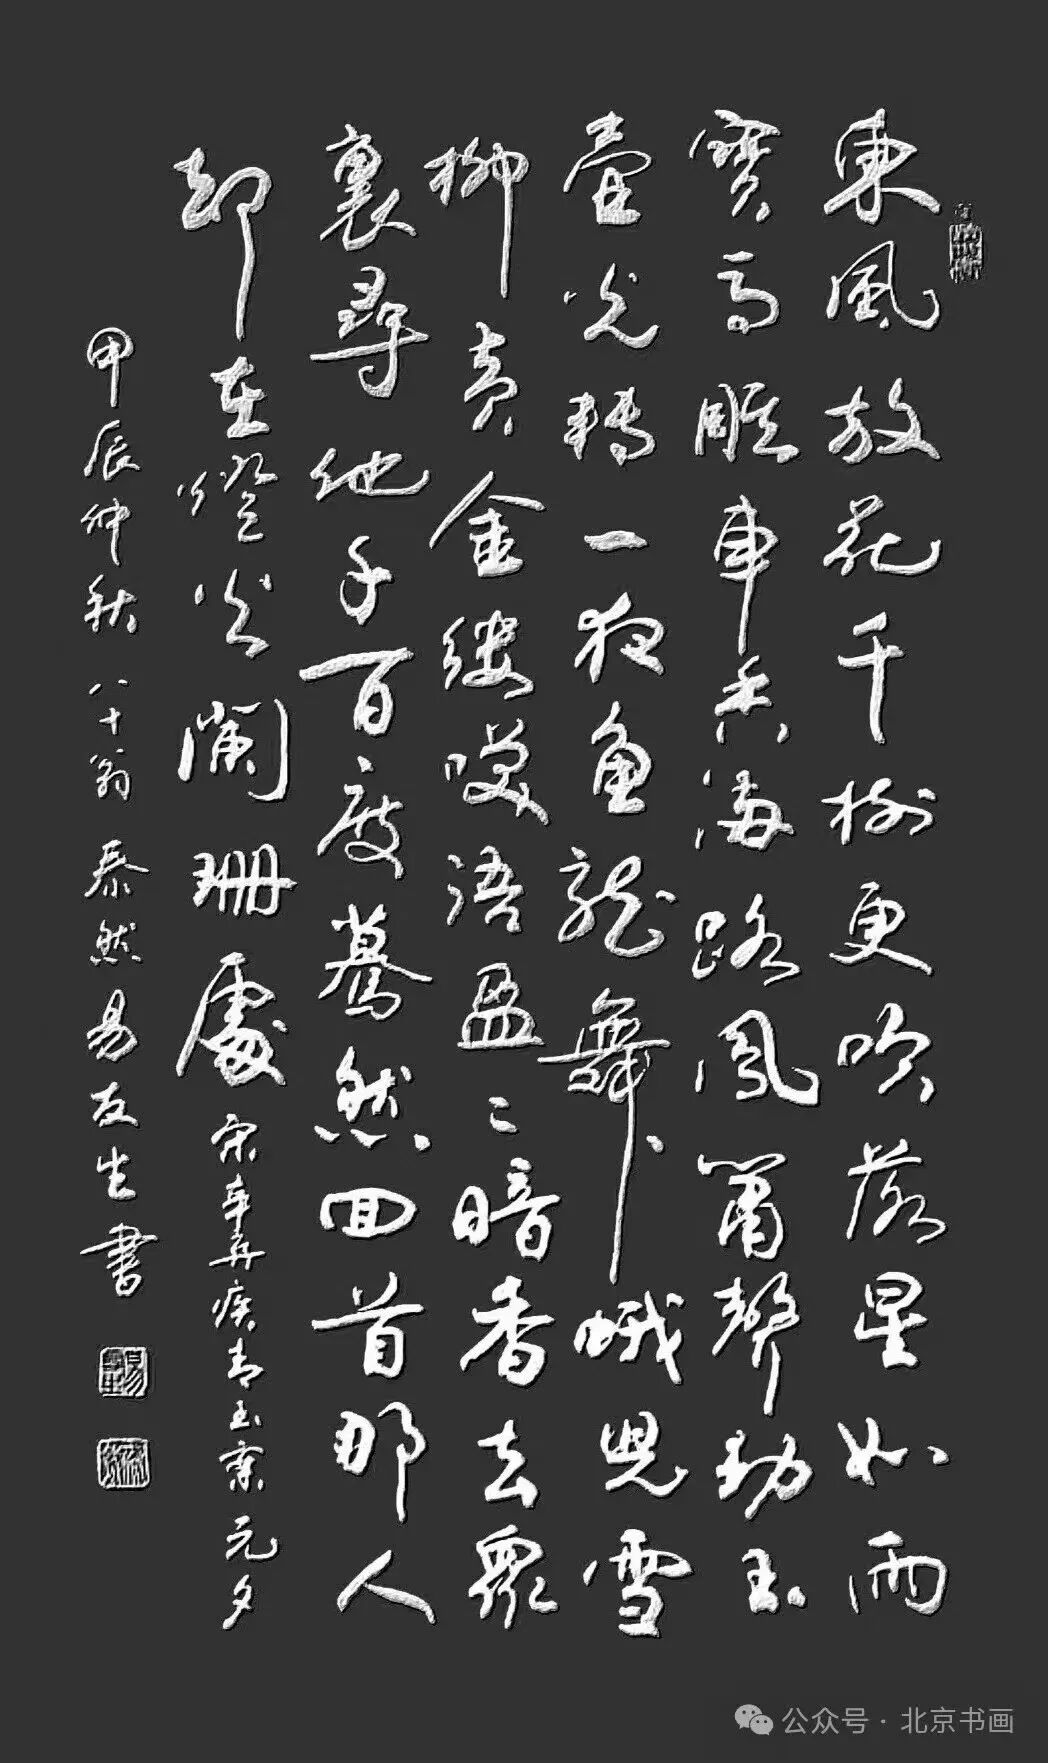 東風放花千樹更吹落星如雨
寶馬雕車香滿路鳳簫聲動玉
壺光轉一夜魚龍舞蛾兒雪
柳黃金縷咲語盈〻暗香去眾
裏尋他千百度驀然回首那人
却在燈火闌珊處 宋辛弃疾青玉案元夕
甲辰仲秋八十翁泰然易友生書
公众号 · 北京书画